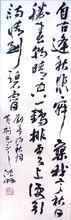 自古逢秋悲寂寥我言秋
日勝春朝晴空一鶴排雲上便引
詩情到碧霄 劉禹錫秋詞
沈鵬